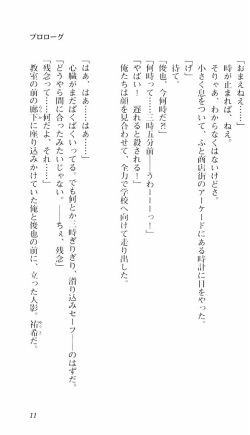 プロローグ
「おまえねえ……」
時が止まれば、ねえ。
そりゃあ、わからなくはないけどさ。
小さく息をついて、ふと商店街のアーケードにある時計に目をやった。
「げ」
待て。
「俊也、今何時だ⁈」
「何時って……三時五分前——うわーーーっ！」
「やばい！　遅れると殺される！」
俺たちは顔を見合わせて、全力で学校へ向けて走り出した。
「はあ、はあ……はあ……」
心臓がまだばくばくいってる。でも何とか三時ぎりぎり、滑り込みセーフ——のはずだ。
「どうやら間に合ったみたいじゃない。——ちぇ、残念」
「残念って……何だよ、それ……」
教室の前の廊下に座り込みかけていた俺と俊也の前に、立った人影。祐希だ。
11